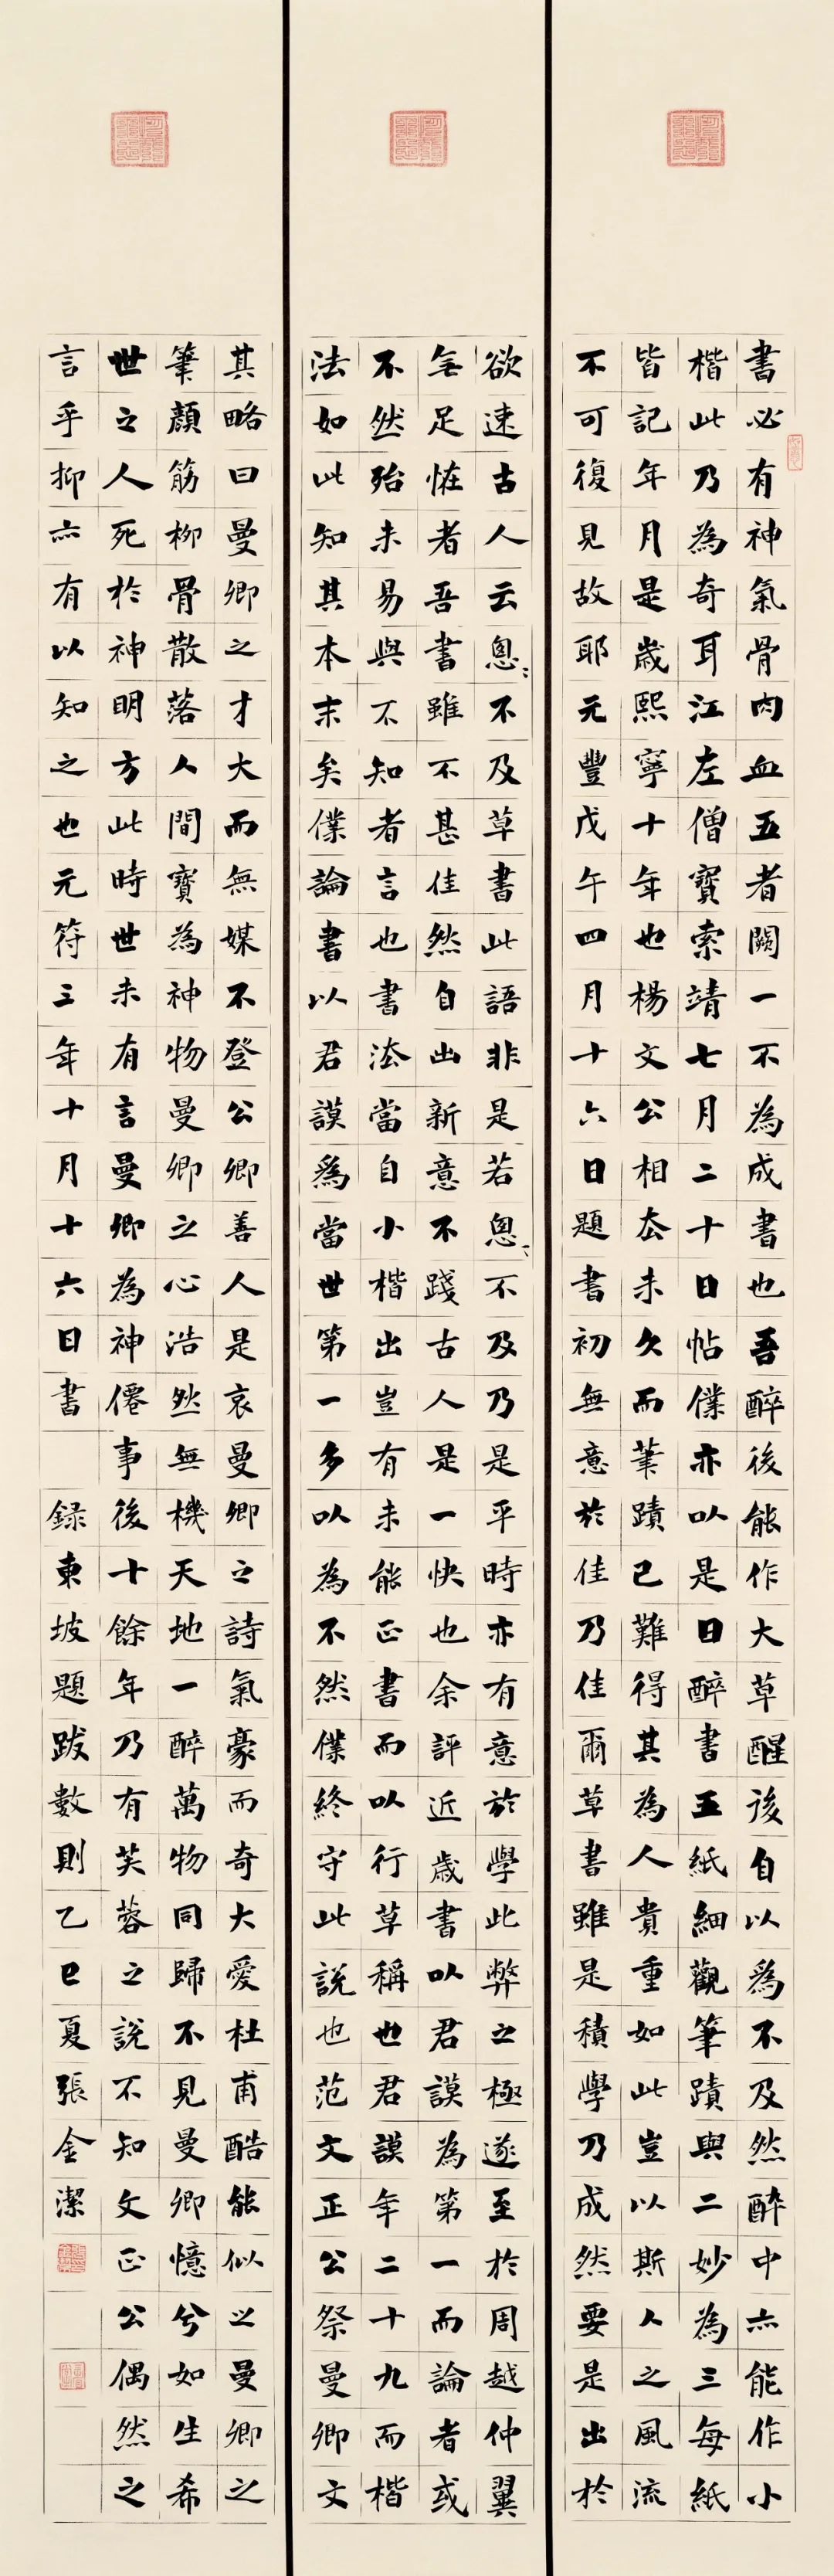 書必有神氣骨肉血五者闕一不為成書也吾醉後能作大草醒後自以爲不及然醉中亦能作小
楷此乃為奇耳江左僧寶索靖七月二十日帖僕亦以是日醉書五紙細觀筆蹟與二妙為三每紙
皆記年月是歲熙寧十年也楊文公相去未久而筆蹟已難得其為人貴重如此豈以斯人之風流
不可復見故耶元豐戊午四月十六日題書初無意於佳乃佳爾草書雖是積學乃成然要是出於
欲速古人云怱〻不及草書此語非是若怱〻不及乃是平時亦有意於學此弊之極遂至於周越仲翼
無足怪者吾書雖不甚佳然自出新意不踐古人是一快也余評近歲書以君謨為第一而論者或
不然殆未易與不知者言也書法當自小楷出豈有未能正書而以行草稱也君謨年二十九而楷
法如此知其本末矣僕論書以君謨爲當世第一多以為不然僕終守此説也范文正公祭曼卿文
其略曰曼卿之才大而無媒不登公卿善人是哀曼卿之詩氣豪而奇大愛杜甫酷能似之曼卿之
筆顏筋柳骨散落人間寶為神物曼卿之心浩然無機天地一醉萬物同歸不見曼卿憶兮如生希
世之人死於神明方此時世未有言曼卿為神僊事後十餘年乃有芙蓉之説不知文正公偶然之
言乎抑亦有以知之也元符三年十月十六日書
録東坡題跋數則乙巳夏張金潔